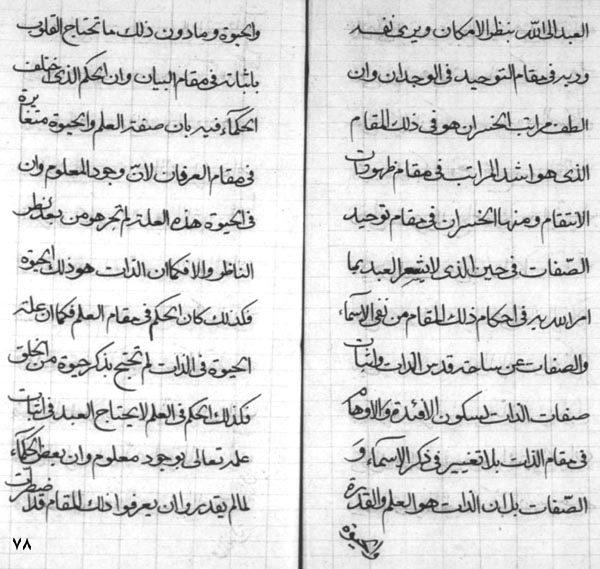 العبد الی الله بنظر الامکان ویری نفسه
وربه فی مقام التوحید فی الوجدان وان
الطف مراتب الخسران هو فی ذلک المقام
الذی هو اشد المراتب فی مقام ظهورات
الانتقام ومنها الخسران فی مقام توحید
الصّفات فی حین الذی لا یشعر العبد بما
امر الله به فی احکام ذلک المقام من نفی الاسماء
والصفات عن ساحة قدس الذات واثبات
صفات الذات لسکون الافئدة والاوهام
فی مقام الذات بلا تغییر فی ذکر الاسماء و
الصّفات بل ان الذات هو العلم والقدرة
والحیوة
والحیوة ومادون ذلک ما تحتاج القلوب
باثباته فی مقام البیان وان الحکم الذی اختلف
الحکماء فیه بان صفة العلم والحیوة متغایرة
فی مقام العرفان لانّ وجود المعلوم وان
فی الحیوة هذه العلة لم تجر هو من بعد نظر
الناظر والا فکما ان الذات هو ذلک الحیوة
فکذلک کان الحکم فی مقام العلم فکما ان علة
الحیوة فی الذات لم تحتج بذکر حیوة من الخلق
فکذلک الحکم فی العلم لا یحتاج العبد فی اثبات
علمه تعالی بوجود معلوم وان بعض الحکماء
لما لم یقدروا ان یعرفوا ذلک المقام قد اضطرت
۷۸